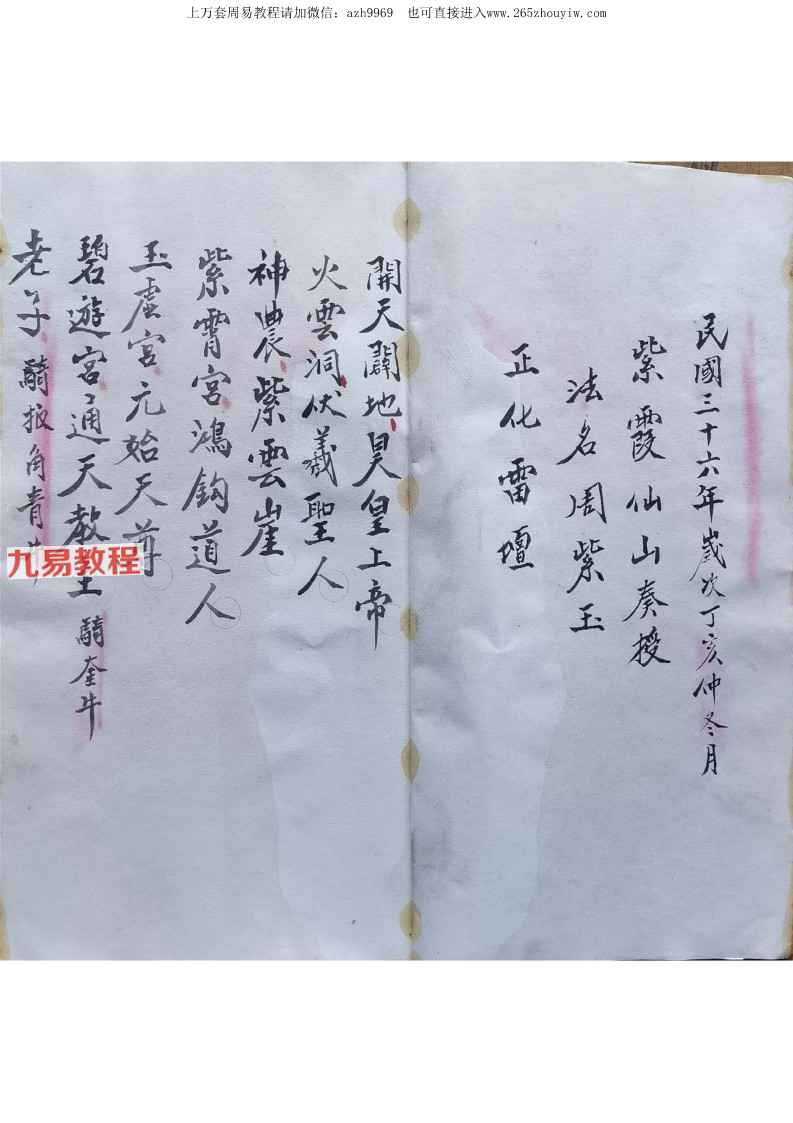 上万套周易教程请加微信：azh9969 也可直接进入www.265zhouyiw.com
民國三十六年歲次丁亥仲冬月
紫霞仙山奏授
法名周紫玉
正化雷壇
開天闢地昊皇上帝
火雲洞伏羲聖人
神農紫雲崖
紫霄宮鴻鈞道人
玉虛宮元始天尊
碧遊宮通天教主 騎奎牛
老子騎扳角青牛
九易教程